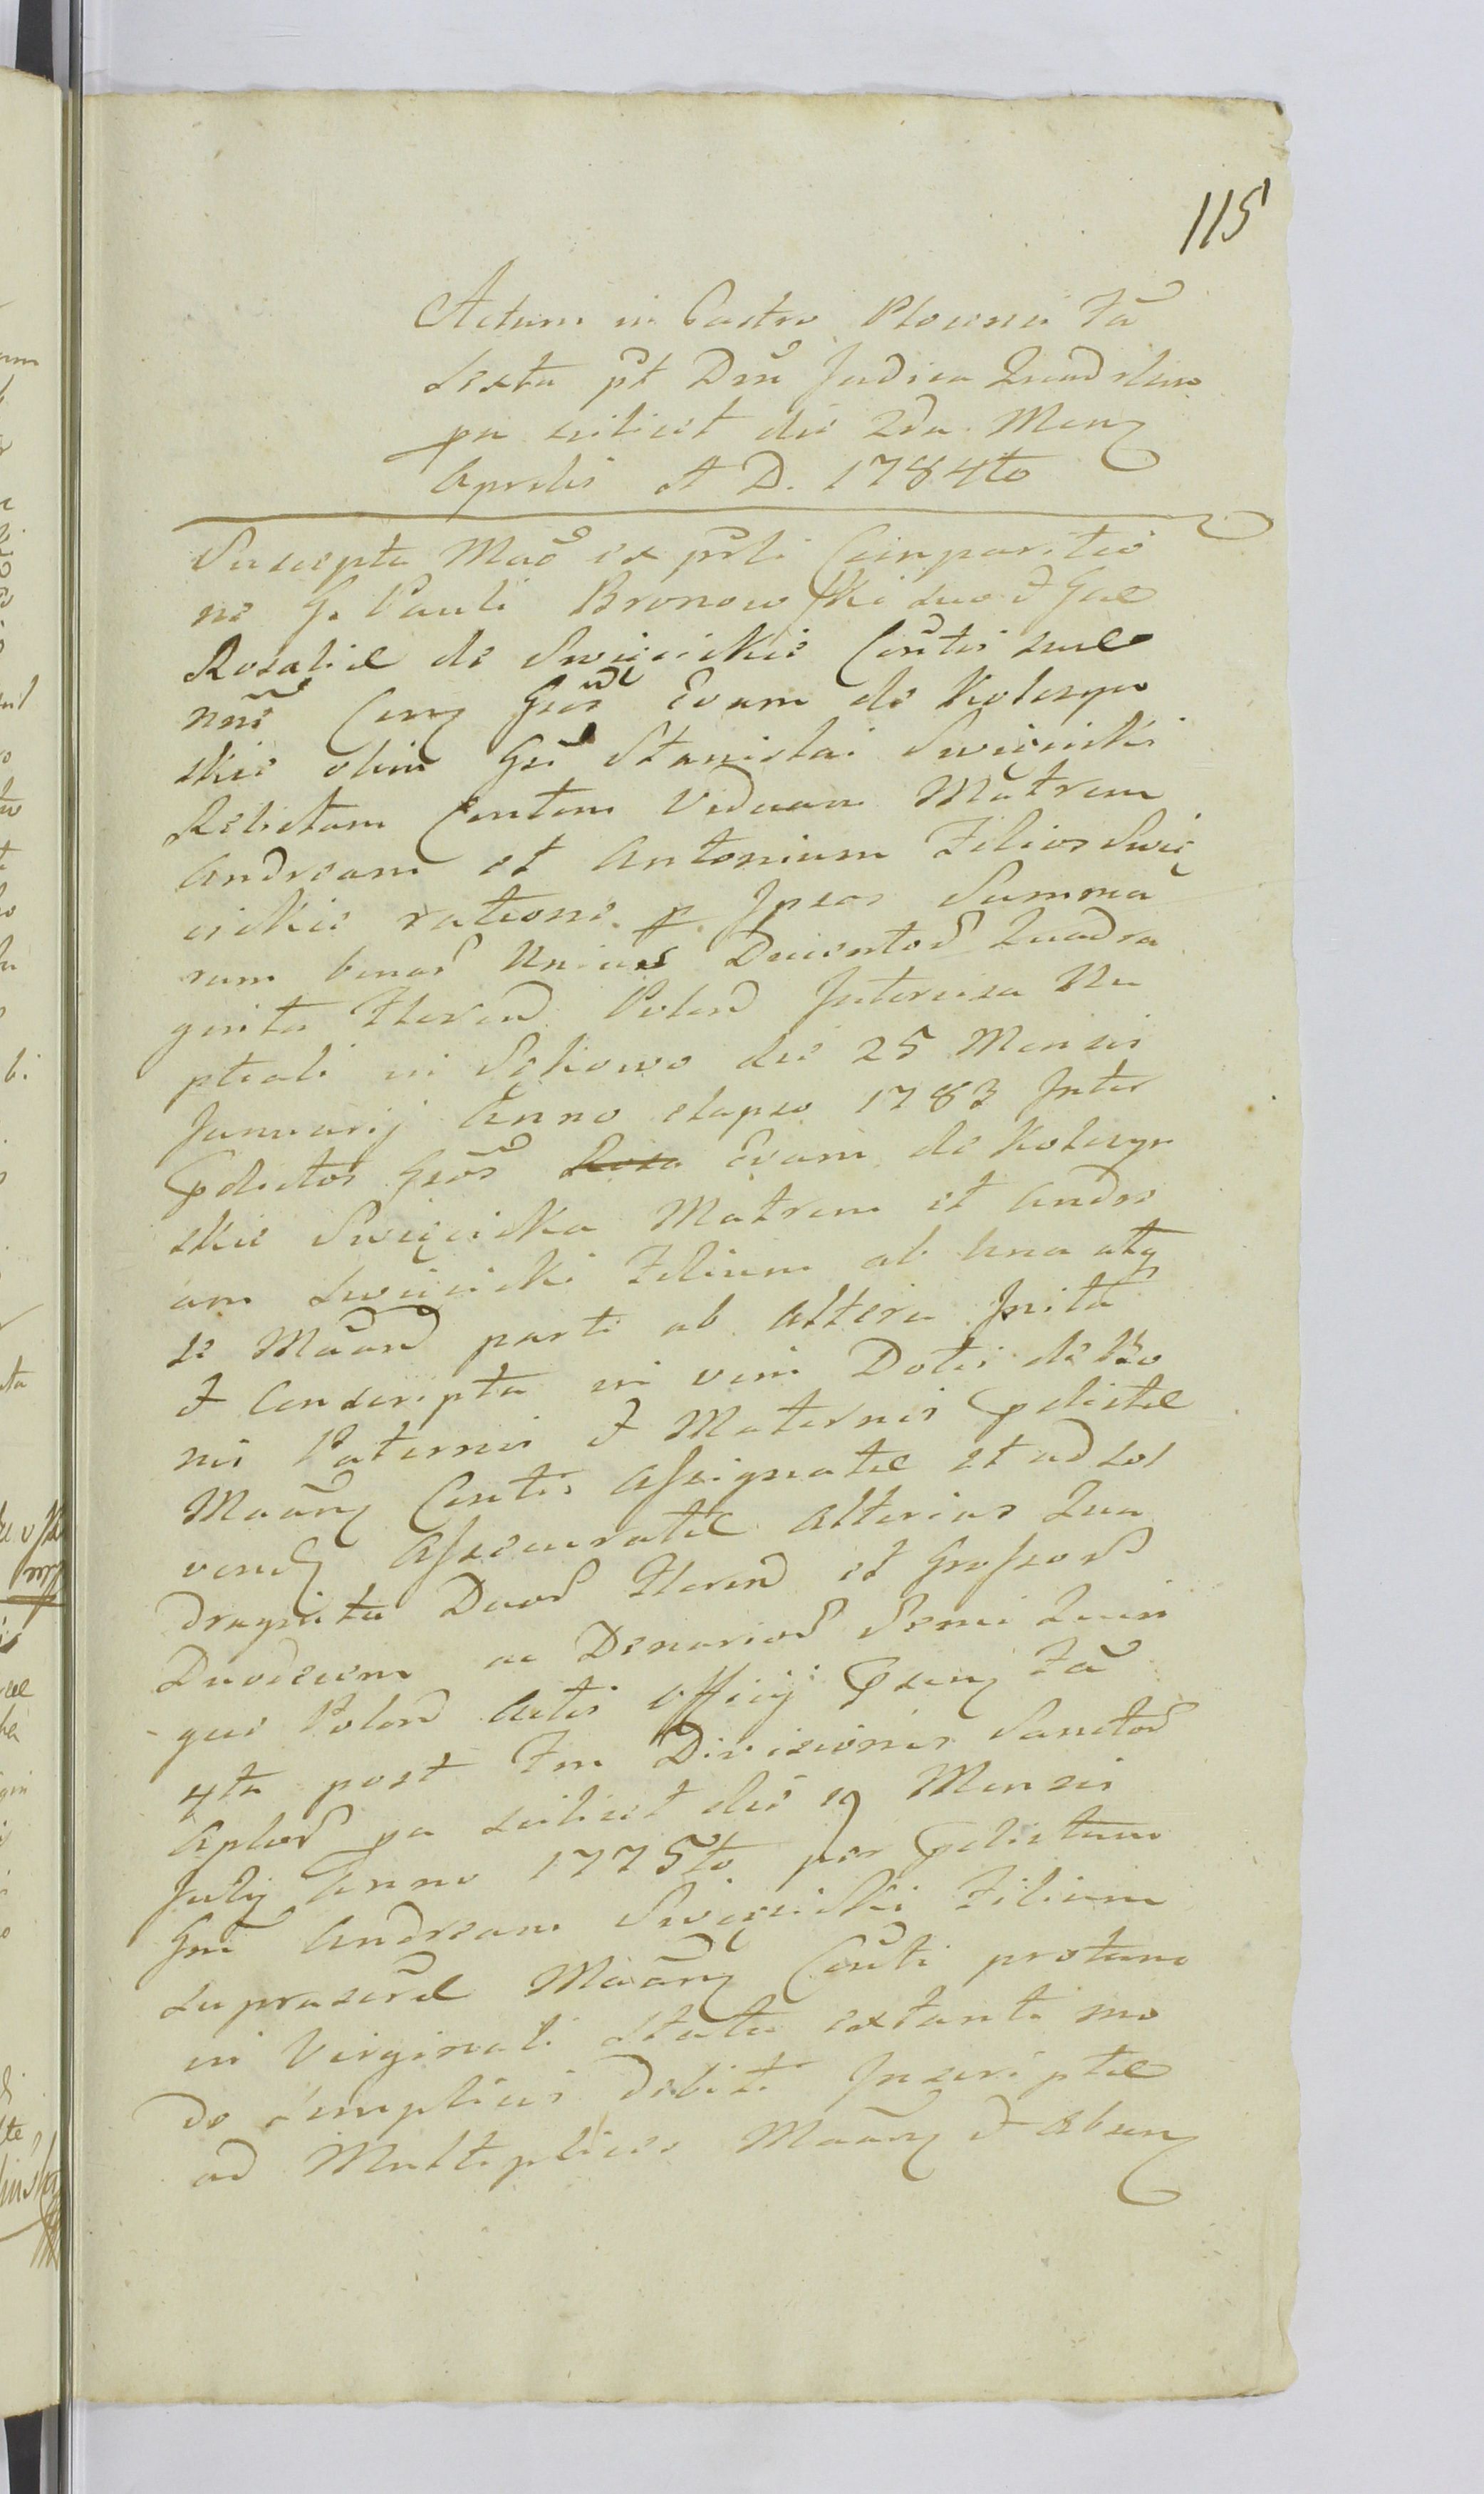 115
Actum in Castro Plocensi Fã
Sexta pt Dnã Judica Quadrlem
pa scilicet die 2da Mens
Aprilis A D. 1784to
Suscepta Mão ex prli Comparitio
ne G. Pauli Bronowski suo & Gnæ
Rosaliæ de Swięcickie Consortis suæ
nñe Cong Gños Evam de Kolczyn
skie olim Gñi Stanislai Swięcicki
Relictam Contem Viduam Matrem
Andream et Antonium Filios Swię
cickie ratione p Ipsos Summa
rum binar Unius Ducentor Quadra
ginta Floren Polon Intercisa Nu
ptiali in Sekowo die 25 Mensis
Januarij Anno elapso 1783 Inter
pdictos Gños Evam de Kolczyn
skie Swięcicka Matrem et Andre
am Swięcicki Filium ab una atq
se Mãan parte ab altera Inita
& Conscripta in vim Dotis de Bo
nis Paternis & Maternis pdictæ
Mãang Conti Assignatæ et ad sol
vend Assecuratæ Alterius Qua
draginta Duor Floren et Grossor
Duodecim ac Denarior Semi Quin
que Polon Actis Officij pseng Fã
4ta post Fm Divisionis Sanctor
Aplor pa scilicet die 19 Mensis
Julij Anno 1775to per pdictum
Gnũ Andream Swięcicki Filium
suprascræ Mãang Conti protunc
in Virginali Statu extanti mo
do simplicis debiti Inscriptæ
ad Multiplices Mãang & Absen